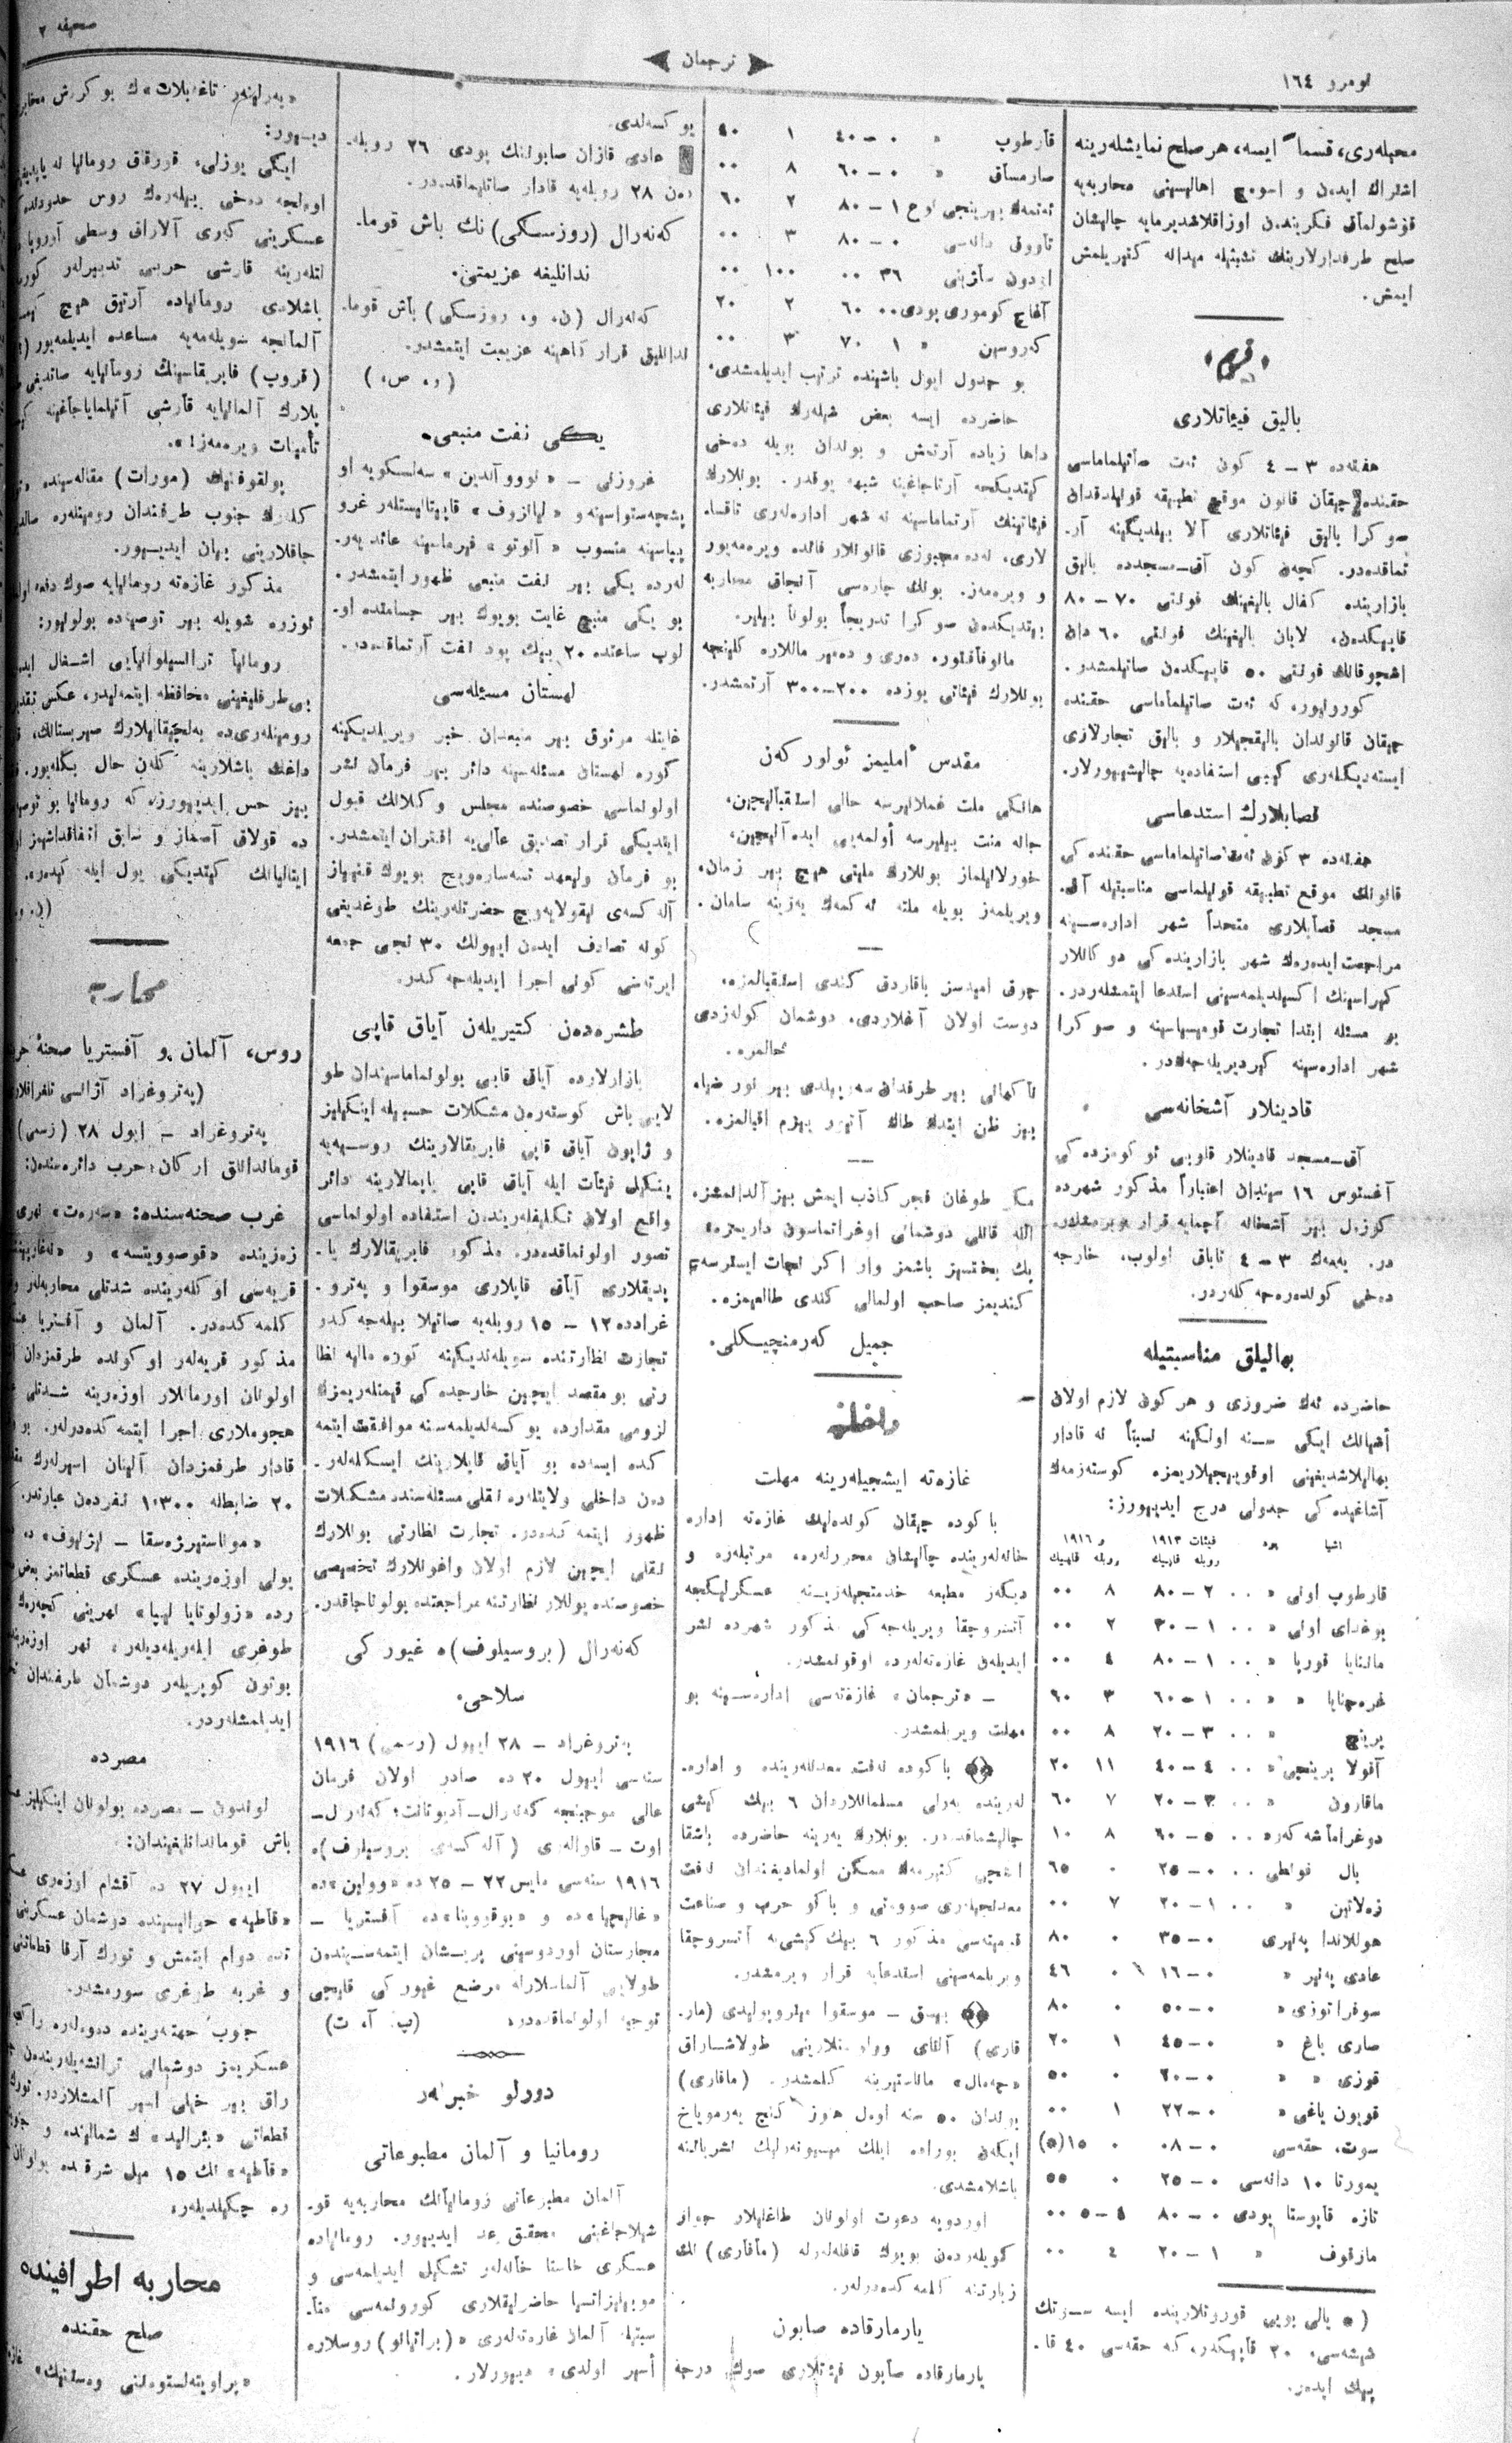 نومرو ١٦٤
ترجمان
صحیفه ٢
محیله‌ری، قسماً ایسه، هر صلح نمایشلەرینه
اشتراك ایدەن و اسوەچ اهالیسنی محاربه‌یه
قوشولماق فکریندەن اوزاقلاشدیرمایه چالیشان
صلح طرفدارلارینك تشبثیله میدانه کتیریلمش
ایمش.
قریم
بالیق فیئاتلاری
هفته‌ده ٣ – ٤ کون ئەت صاتیلماماسی
حقنده چیقان قانون موقع تطبیقه قویلدقدان
صوکرا بالیق فیئاتلاری آلا بیلدیگینه آر.
تماقدەدر. کچەن کون آق–مسجدده بالیق
بازارینده کفال بالیغینك فونتی ٧٠ – ٨٠
قاپیکدەن، لابان بالیغینك فونتی ٦٠ دان
اشجوقانك فونتی ٥٠ قاپیکدەن صاتیلمشدر.
کورولیور، که ئەت صاتیلماماسی حقنده
چیقان قانوندان بالیقجیلار و بالیق تجارلاری
ایستەدیکلەری کیبی استفادەیه چالیشیورلار.
قصابلارك استدعاسی
هفته‌ده ٣ کون ئەت صاتیلماماسی حقنده کی
قانونك موقع تطبیقه قویلماسی مناسبتیله آق.
مسجد قصابلاری متحداً شهر ادارەسینه
مراجعت ایدەرەك شهر بازارینده کی دوکانلار
کیراسینك اکسیلدیلمەسینی استدعا ایتمشلەردر.
بو مسئله ابتدا تجارت قومیسیاسینه و صوکرا
شهر ادارەسینه کیردیریلەجەکدر.
قادینلار آشخانەسی
آق–مسجد قادینلار قلوبی ئوکومزده کی
آغستوس ١٦ سیندان اعتباراً مذکور شهرده
کوزەل بیر آشخانه آچمایه قرار ویرمشلەر.
در. یەمەك ٣ – ٤ تاباق اولوب، خارجه
دەخی کوندەرەجەکلەردر.
بهالیلق مناسبتیله
حاضرده ئەك ضروری و هرکون لازم اولان
أشیانك ایکی سنه اولکینه نسبتاً نه قادار
بهالیلاشدیغینی اوقویجیلاریمزه کوستەرمەك
آشاغیده کی جدولی درج ایدییورز:
اشیا
فیئات ١٩١٣ و ١٩١٦
روبله قاپیك روبله قاپیك
قارطوپ اونی « ٠٠ ٢ – ٨٠ ٨ ٠٠
بوغدای اونی « ٠٠ ١ – ٣٠ ٢ ٠٠
ماننایا قوربا « ٠٠ ١ – ٨٠ ٤ ٠٠
غرەچنایا « « ٠٠ ١ – ٦٠ ٣ ٦٠
پرینچ « ٠٠ ٣ – ٢٠ ٨ ٠٠
آقولا برینجی « ٠٠ ٤ – ٤٠ ١١ ٢٠
ماقارون « ٠٠ ٣ – ٢٠ ٧ ٦٠
دوغراما شەکەر « ٠٠ ٥ – ٦٠ ٨ ١٠
بال فونطی ٠٠ ٠ – ٢٥ ٠ ٦٥
ژەلاتین « ٠٠ ١ – ٢٠ ٧ ٠٠
هوللاندا پەنیری ٠ – ٣٥ ٠ ٨٠
عادی پەنیر « ٠ – ١٦ ٠ ٤٦
سوفرا توزی « ٠ – ٥٠ ٠ ٨٠
صاری یاغ « ٠ – ٤٥ ١ ٢٠
قوزی « « ٠ – ٢٠ ٠ ٥٠
قویون یاغی « ٠ – ٢٢ ١ ٠٠
سوت، حقەسی ٠ – ٠٨ ٠ ١٥(*)
یمورتا ١٠ دانەسی ٠ – ٢٥ ٠ ٥٥
تازه قاپوستا پودی ٠ – ٨٠ ٤ – ٥ ٠٠
مازقوف « ١ – ٢٠ ٤ ٠٠
(* یالی بویی قورورتلارینده ایسه سوتك
شیشەسی، ٢٠ قاپیکدر، که حقەسی ٤٠ قا.
پیك ایدەر.
قارطوپ « ٠ – ٤٠ ١ ٤٠
صارمساق « ٠ – ٦٠ ٨ ٠٠
ئەتمەك بیرینجی نوع ١ – ٨٠ ٢ ٦٠
تاووق دانەسی ٠ – ٨٠ ٣ ٠٠
اودون ساژینی ٣٦ ٠٠ ١٠٠ ٠٠
آغاچ کوموری پودی ٠٠ ٦٠ ٢ ٢٠
کەروسین « ١ ٧٠ ٣ ٠٠
بو جدول ایول باشینده ترتیب ایدیلمشدی.
حاضرده ایسه بعض شیلەرك فیئاتلاری
داها زیاده آرتمش و بوندان بویله دەخی
کیتدیکجه آرتاجاغینه شبهه یوقدر. بونلارك
فیئاتینك آرتماماسینه نه شهر ادارەلەری تاقسا.
لاری، نەده مجبوری قانونلار فائده ویرمەیور
و ویرەمەز. بونك چارەسی آنجاق محاربه
بیتدیکدەن صوکرا تدریجاً بولونا بیلیر.
مانوفاقتورە، دەری و دەمیر ماللاره کلینجه
بونلارك فیئاتی یوزده ٢٠٠–٣٠٠ آرتمشدر.
مقدس أملیمز ئولور کەن
هانکی ملت غملانیرسه حالی استقبالیچین،
جانه منت بیلیرسه أولمەیی ایدەآلیچین،
خورلانیلماز بونلارك ملیتی هیچ بیر زمان،
ویریلمەز بویله ملته ئەکمەك یەرینه سامان.
چوق امیدسز باقاردق کندی استقبالمزه،
دوست اولان آغلاردی، دوشمان کولەردی
حالمزه.
ناکهانی بیر طرفدان سەرپیلدی بیر نور ضیا،
بیز ظن ایتدك طاك آتیور بیزم اقبالمزه.
مکر طوغان فجر کاذب ایمش بیز آلدانمشز،
الله قانلی دوشمانی اوغراتماسون داریمزه،
پك بختسیز باشمز وار اکر نجات ایسترسەك
کندیمز صاحب اولمالی کندی طالعیمزه.
جمیل کەرمنچیکلی.
داخلیه
غازەته ایشجیلەرینه مهلت
باکوده چیقان کوندەلیك غازەته اداره
خانەلەرینده چالیشان محررلەره، مرتبلەره و
دیکەر مطبعه خدمتجیلەرینه عسکرلیکجه
آتسروچقا ویریلەجەکی مذکور شهرده نشر
ایدیلەن غازەتەلەرده اوقونمشدر.
– «ترجمان» غازەتەسی ادارەسینه بو
مهلت ویریلمشدر.
باکوده نەفت معدنلەرینده و اداره.
لەرینده یەرلی مسلمانلاردان ٦ بیك کیشی
چالیشماقدەدر. بونلارك یەرینه حاضرده باشقا
ایشچی کتیرمەك ممکن اولمادیغندان نەفت
معدنجیلەری سووەتی و باکو حرب و صناعت
قومیتەسی مذکور ٦ بیك کیشی‌یه آتسروچقا
ویریلمەسینی استدعایه قرار ویرمشدر.
بیسق – موسقوا میتروپولیدی (ماز.
قاری) آلتای وولوستلارینی طولاشاراق
«چەمال» ماناستیرینه کلمشدر. (ماقاری)
بوندان ٥٠ سنه اوەل هنوز کنج یەرموناخ
ایکەن بوراده ایلك میسیونەرلیك نشریاتنه
باشلامشدی.
اوردویه دعوت اولونان طاغلیلار جوار
کویلەردەن بویوك قافلەلەرله (ماقاری) نك
زیارتنه کلمەکدەدرلەر.
یارمارقاده صابون
یارمارقاده صابون فیئاتلاری صوك درجه
یوکسەلدی.
عادی قازان صابونینك پودی ٢٦ روبله.
دەن ٢٨ روبلەیه قادار صاتیلماقدەدر.
کەنەرال (روزسکی) نك باش قوما.
ندانلیغه عزیمتی.
کەنەرال (ن. و. روزسکی) باش قوما.
ندانلیق قرارکاهینه عزیمت ایتمشدر.
(و. ص.)
یکی نفت منبعی.
غروزنی – «نووو آلدین» سەلسکویه او
بشچەستواسینه و «لیانزوف» قاپیتالیستلەر غرو
پپاسینه منسوب «آلوتو» فیرماسینه عائد یەر.
لەرده یکی بیر نفت منبعی ظهور ایتمشدر.
بو یکی منبع غایت بویوك بیر جسامتده او.
لوپ ساعتده ٢٠ بیك پود نفت آرتماقدەدر.
لهستان مسئلەسی
غایتله موثوق بیر منبعدن خبر ویریلدیکینه
کوره لهستان مسئلەسینه دائر بیر فرمان نشر
اولونماسی خصوصنده مجلس وکلانك قبول
ایتدیکی قرار تصدیق عالی‌یه اقتران ایتمشدر.
بو فرمان ولیعهد تسەسارەویچ بویوك قنیاز
آلەکسەی نیقولایەویچ حضرتلەرینك طوغدیغی
کونه تصادف ایدەن اییولك ٣٠ نجی جمعه
ایرتەسی کونی اجرا ایدیلەجەکدر.
طشرەدەن کتیریلەن آیاق قاپی
بازارلارده آیاق قابی بولونماماسیندان طو
لایی باش کوستەرەن مشکلات حسبیله اینکیلیز
و ژاپون آیاق قابی فابریقالارینك روسیەیه
ینکیل فیئات ایله آیاق قابی یاپمالارینه دائر
واقع اولان تکلیفلەریندن استفاده اولونماسی
تصور اولونماقدەدر. مذکور فابریقالارك یا.
پدیقلاری آیاق قاپلاری موسقوا و پەترو.
غرادده ١٢ – ١٥ روبلەیه صاتیلا بیلەجەکدر
تجارت نظارتنده سویلەندیکینه کوره مالیه نظا
رتی بو مقصد ایچین خارجده کی قیمتلەریمزك
لزومی مقدارده یوکسەلدیلمەسنه موافقت ایتمە
کده ایسەده بو آیاق قاپلارینك ایسکلەلەر.
دەن داخلی ولایتلەره نقلی مسئلەسنده مشکلات
ظهور ایتمەکدەدر. تجارت نظارتی بونلارك
نقلی ایچین لازم اولان واغونلارك تخصیصی
خصوصنده یوللار نظارتنه مراجعتده بولوناجاقدر.
کەنەرال (بروسیلوف)ه غیور کی
سلاحی.
پەتروغراد – ٢٨ ایول (رسمی) ١٩١٦
سنەسی ایول ٢٠ ده صادر اولان فرمان
عالی موجبنجه کەنەرال–آدیوتانت؛ کەنەرال–
اوت – قاوالەری (آلەکسەی بروسیلوف)ه
١٩١٦ سنەسی مایس ٢٢ – ٢٥ ده «وولین»ده
«غالیچیا»ده و «بوقووینا»ده آفستریا –
مجارستان اوردوسینی پریشان ایتمەسیندەن
طولایی آلماسلارله مرصع غیورکی قلیجی
توجیه اولونماقدەدر. (پ. آ. ت)
دورلو خبرلەر
رومانیا و آلمان مطبوعاتی
آلمان مطبوعاتی رومانیانك محاربەیه قو.
شیلاجاغینی محقق عد ایدییور. رومانیاده
عسکری خاستا خانەلەر تشکیل ایدیلمەسی و
موبیلیزاتسیا حاضرلیقلاری کورولمەسی منا.
سبتیله آلمان غازەتەلەری «(براتیانو) روسلاره
أسیر اولدی» دییورلار.
«بەرلینەر تاغەبلات»ك بو کوبش مخابر
دییور:
ایکی یوزلی، قورقاق رومانیا نه یاپدیغی
اوەلجه دەخی بیلەرەك روس حدودنده
عسکرینی کیری آلاراق وسطی آوروپا
لتلەرینه قارشی حربی تدبیرلەر کور
باشلادی رومانیاده آرتیق هیچ کیمسه
آلمانجه سویلەمەیه مساعده ایدیلمەیور
(قروپ) فابریقاسینك رومانیایه صاتدیغی
پلارك آلمانیایه قارشی آتیلمایاجاغینه
تأمینات ویرەمەز!».
پولقوفنیك (مورات) مقالەسینده
کلەرك جنوب طرفندان رومینلەره صالد
جاقلارینی بیان ایدییور.
مذکور غازەته رومانیایه صوك دفعه اول
ئوزره شویله بیر توصیەده بولونیور:
رومانیا ترانسیلوانیایی اشغال اید
بی‌طرفلیغینی محافظه ایتمەلیدر، عکس تقد
رومینلەری‌ده بەلچیقالیلارك صربستانك، قر
داغك باشلارینه کلەن حال بکلەیور.
بیز حس ایدییورز، که رومانیا بو توصیه
ده قولاق آصماز و سابق اتفاقداشیمز
ایتالیانك کیتدیکی یول ایله کیدەر».
محاربه
روس، آلمان و آفستریا صحنهٔ حر
(پەتروغراد آژانسی تلغرافلاری
پەتروغراد – ایول ٢٨ (رسمی)
قومانداللق ارکان حرب دائرەسندەن:
غرب صحنەسنده: «سەرەت» نهری
قریەسی اوکلەرینده شدتلی محاربەلەر
کلمەکدەدر. آلمان و آفستریا
مذکور قریەلەر اوکونده طرفمزدان
اولونان اورمانلار اوزەرینه شدتلی
هجوملاری اجرا ایتمەکدەدرلەر. بو
قادار طرفمزدان آلینان اسیرلەرك
٢٠ ضابطله ١٣٠٠ نفردەن عبارتدر.
«موناستیرژەسقا – نیژنیوف» ده
یولی اوزەرینده عسکری قطعاتمز بعض
رده «زولوتایا لیپا» نهرینی کچەرەك
طوغری ایلەریلەدیلەر. نهر اوزەرینده
بوتون کوپریلەر دوشمان طرفندان
ایدیلمشلەردر.
مصرده
لوندون – مصرده بولونان اینکیلیز
باش قوماندانلیغیندان:
ایول ٢٧ ده آقشام اوزەری
«قاطیه» حوالیسینده دوشمان عسکرینی
تده دوام ایتمش و تورك آرقا قطعاتنی
و غربه طوغری سورمشدر.
جنوب جهتەرینده دەوەلەره راکب
عسکریمز دوشمانی ترانشەیلەریندەن
راق بیر خیلی اسیر آلمشلاردر. تورك
قطعاتی «بئرالبد» ك شمالینده و جنو
«قاطیه» نك ١٥ میل شرقنده بولونان
ره چکیلدیلەر.
محاربه اطرافینده
صلح حقنده
«پراویتەلستوەننی وەستنیك»